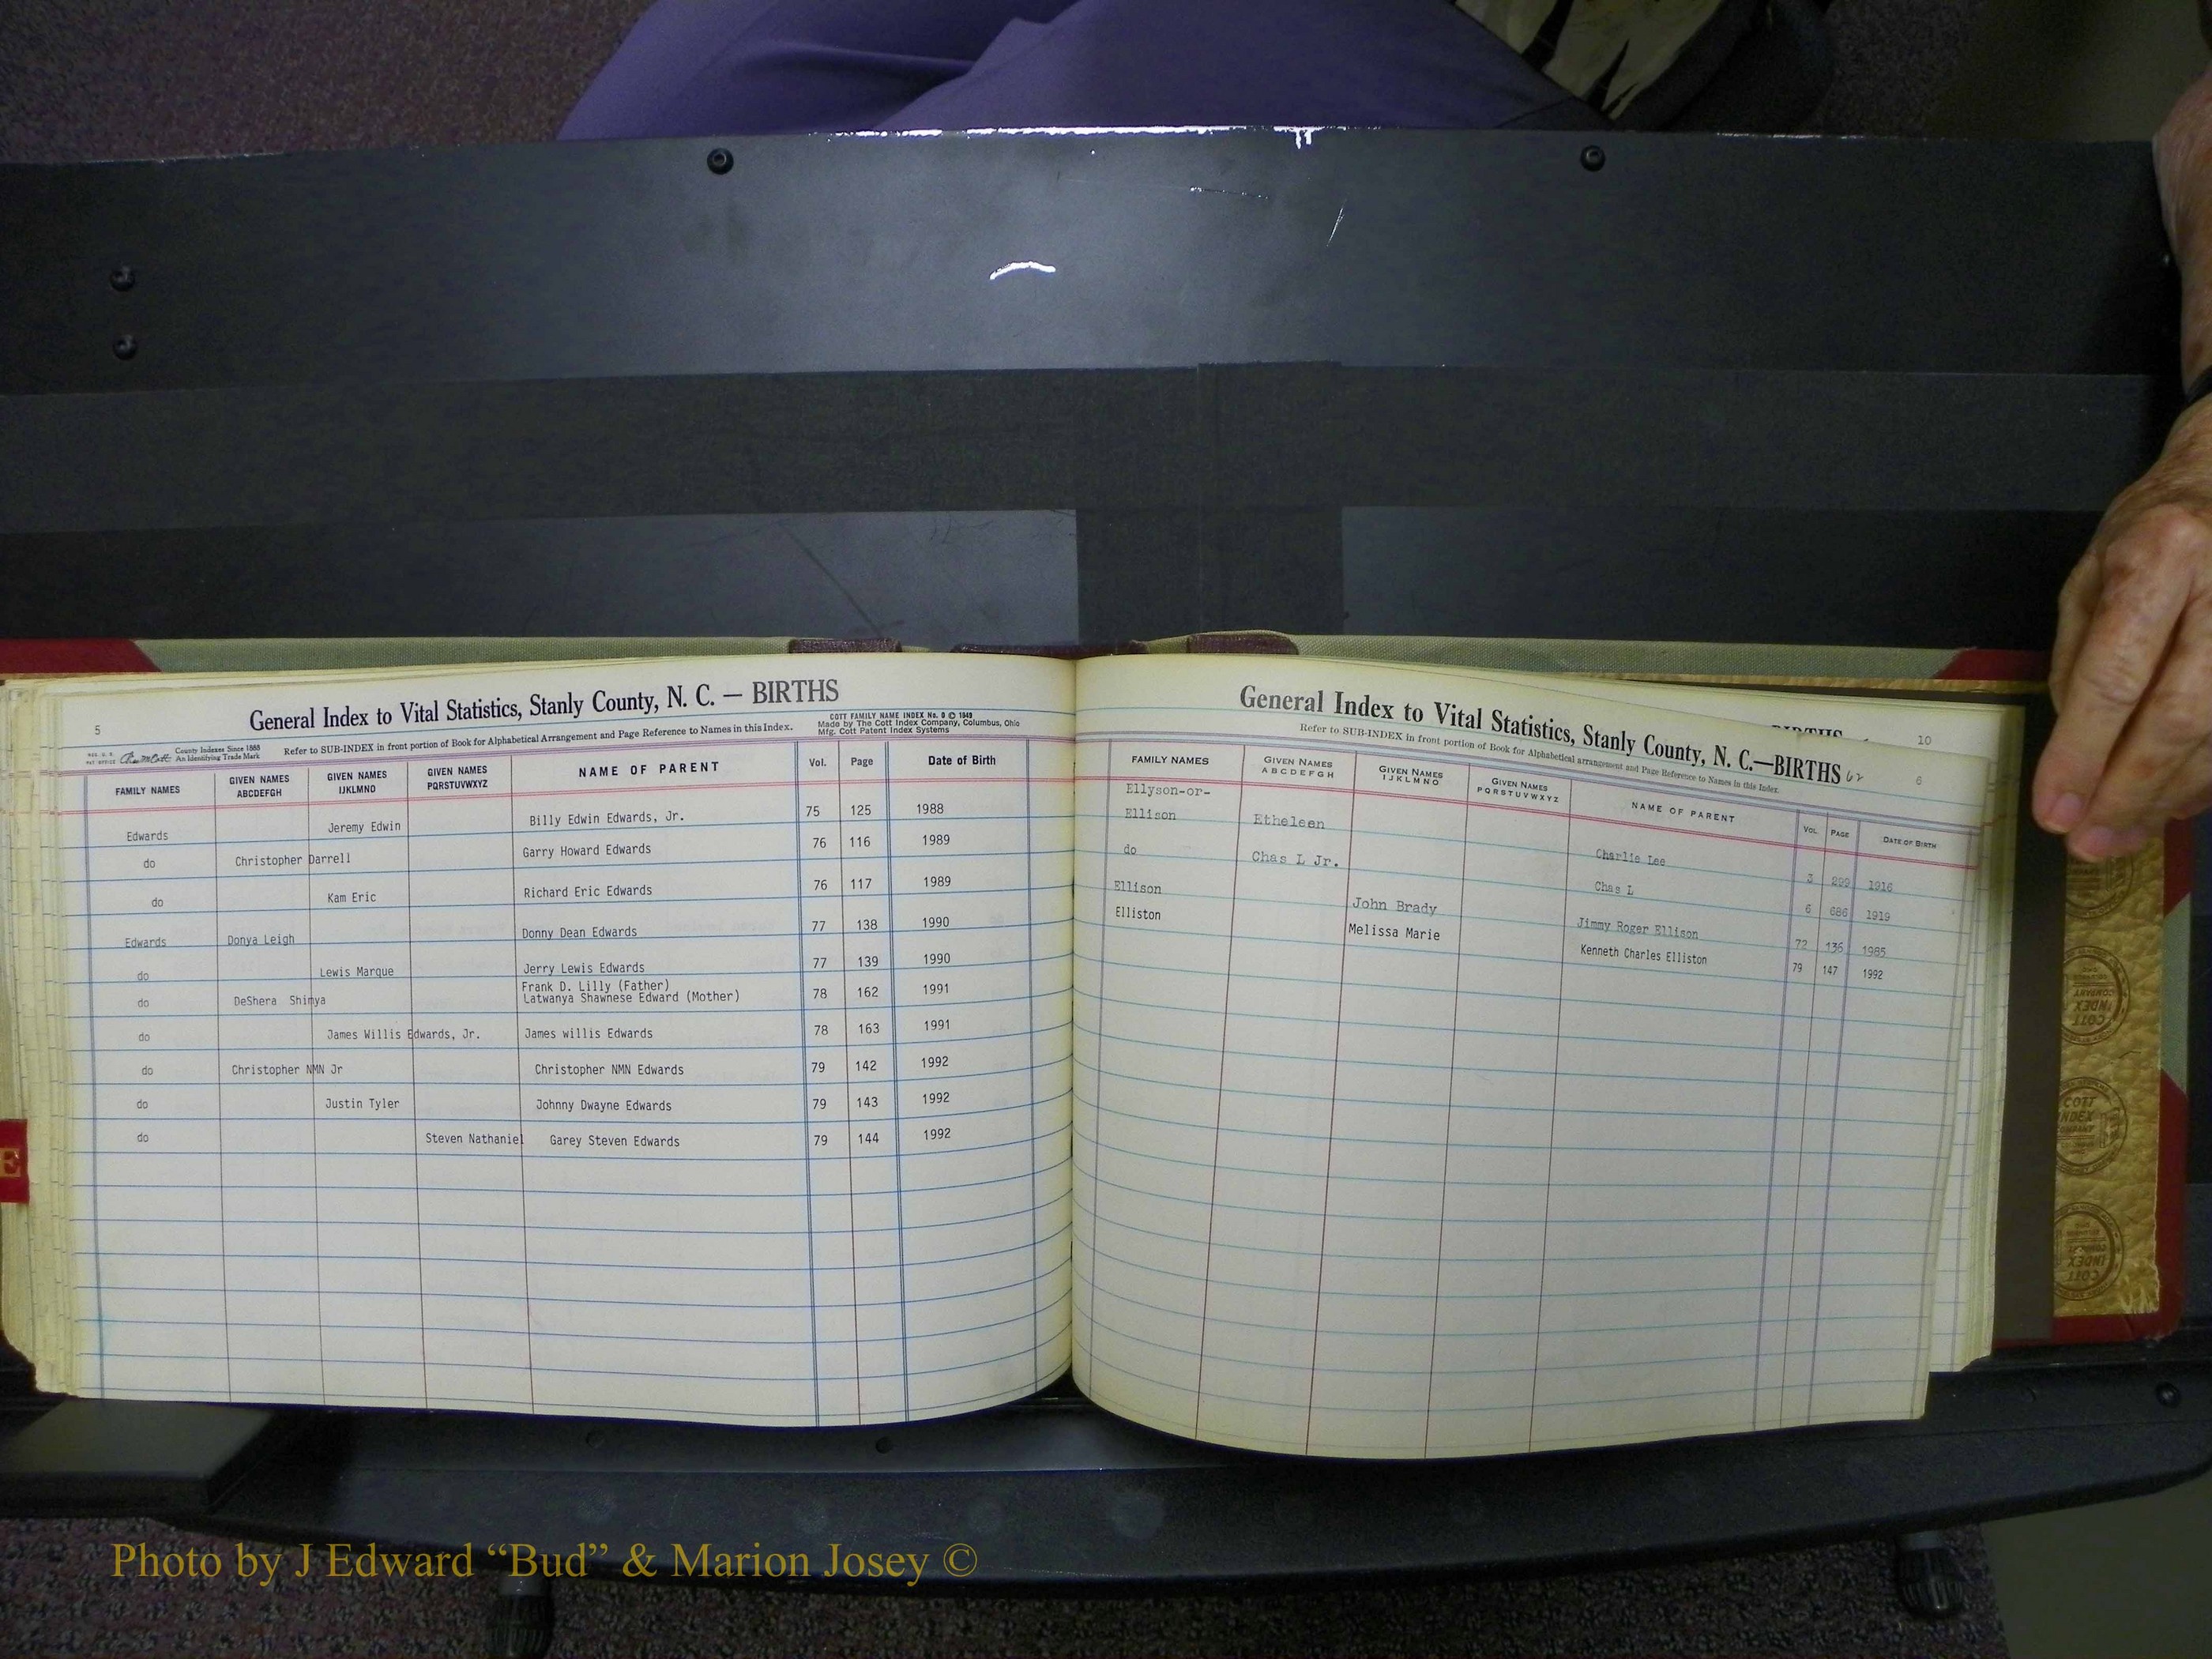 5
General Index to Vital Statistics, Stanly County, N. C. — BIRTHS
COTT FAMILY NAME INDEX No. 0 © 1949
Made by The Cott Index Company, Columbus, Ohio
Mfg. Cott Patent Index Systems
County Indexes Since 1888
An Identifying Trade Mark
Refer to SUB-INDEX in front portion of Book for Alphabetical Arrangement and Page Reference to Names in this Index.
FAMILY NAMES GIVEN NAMES ABCDEFGH GIVEN NAMES IJKLMNO GIVEN NAMES PQRSTUVWXYZ NAME OF PARENT Vol. Page Date of Birth
Edwards Jeremy Edwin Billy Edwin Edwards, Jr. 75 125 1988
do Christopher Darrell Garry Howard Edwards 76 116 1989
do Kam Eric Richard Eric Edwards 76 117 1989
Edwards Donya Leigh Donny Dean Edwards 77 138 1990
do Lewis Marque Jerry Lewis Edwards 77 139 1990
Frank D. Lilly (Father)
do DeShera Shinya Latwanya Shawnese Edward (Mother) 78 162 1991
do James Willis Edwards, Jr. James willis Edwards 78 163 1991
do Christopher NMN Jr Christopher NMN Edwards 79 142 1992
do Justin Tyler Johnny Dwayne Edwards 79 143 1992
do Steven Nathaniel Garey Steven Edwards 79 144 1992
E
BIRTHS 10
General Index to Vital Statistics, Stanly County, N. C.—BIRTHS 62 6
Refer to SUB-INDEX in front portion of Book for Alphabetical arrangement and Page Reference to Names in this Index.
FAMILY NAMES GIVEN NAMES ABCDEFGH GIVEN NAMES IJKLMNO GIVEN NAMES PQRSTUVWXYZ NAME OF PARENT VOL. PAGE DATE OF BIRTH
Ellyson-or-
Ellison Etheleen Charlie Lee 3 299 1916
do Chas L Jr. Chas L 6 686 1919
Ellison John Brady Jimmy Roger Ellison 72 136 1985
Elliston Melissa Marie Kenneth Charles Elliston 79 147 1992
COTT
INDEX
COMPANY
COTT
INDEX
COMPANY
COTT
INDEX
Photo by J Edward “Bud” & Marion Josey ©